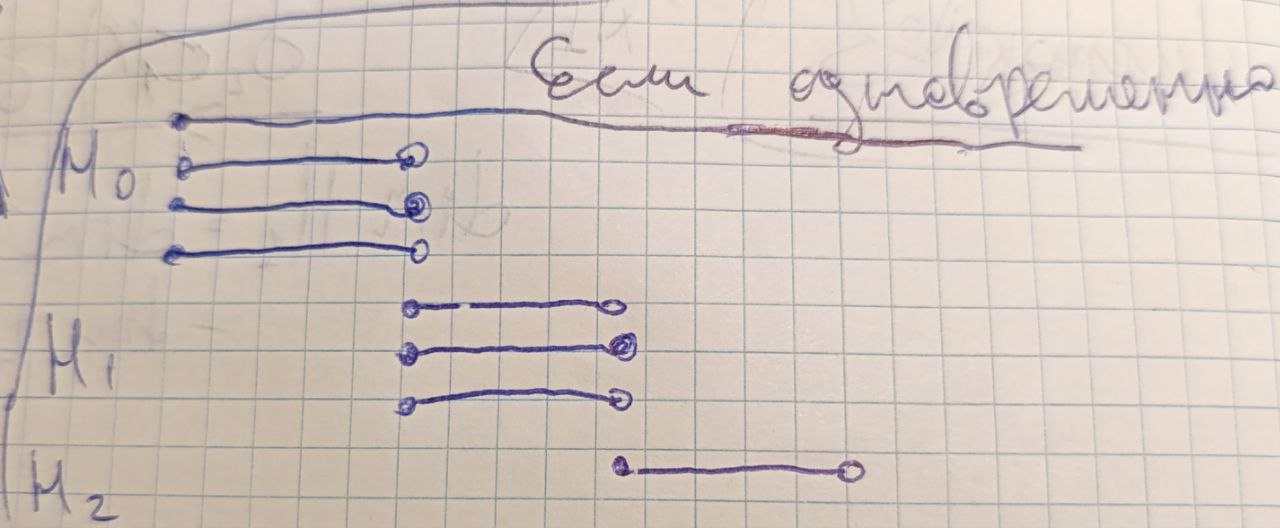 Если одновременно
H₀
H₁
H₂